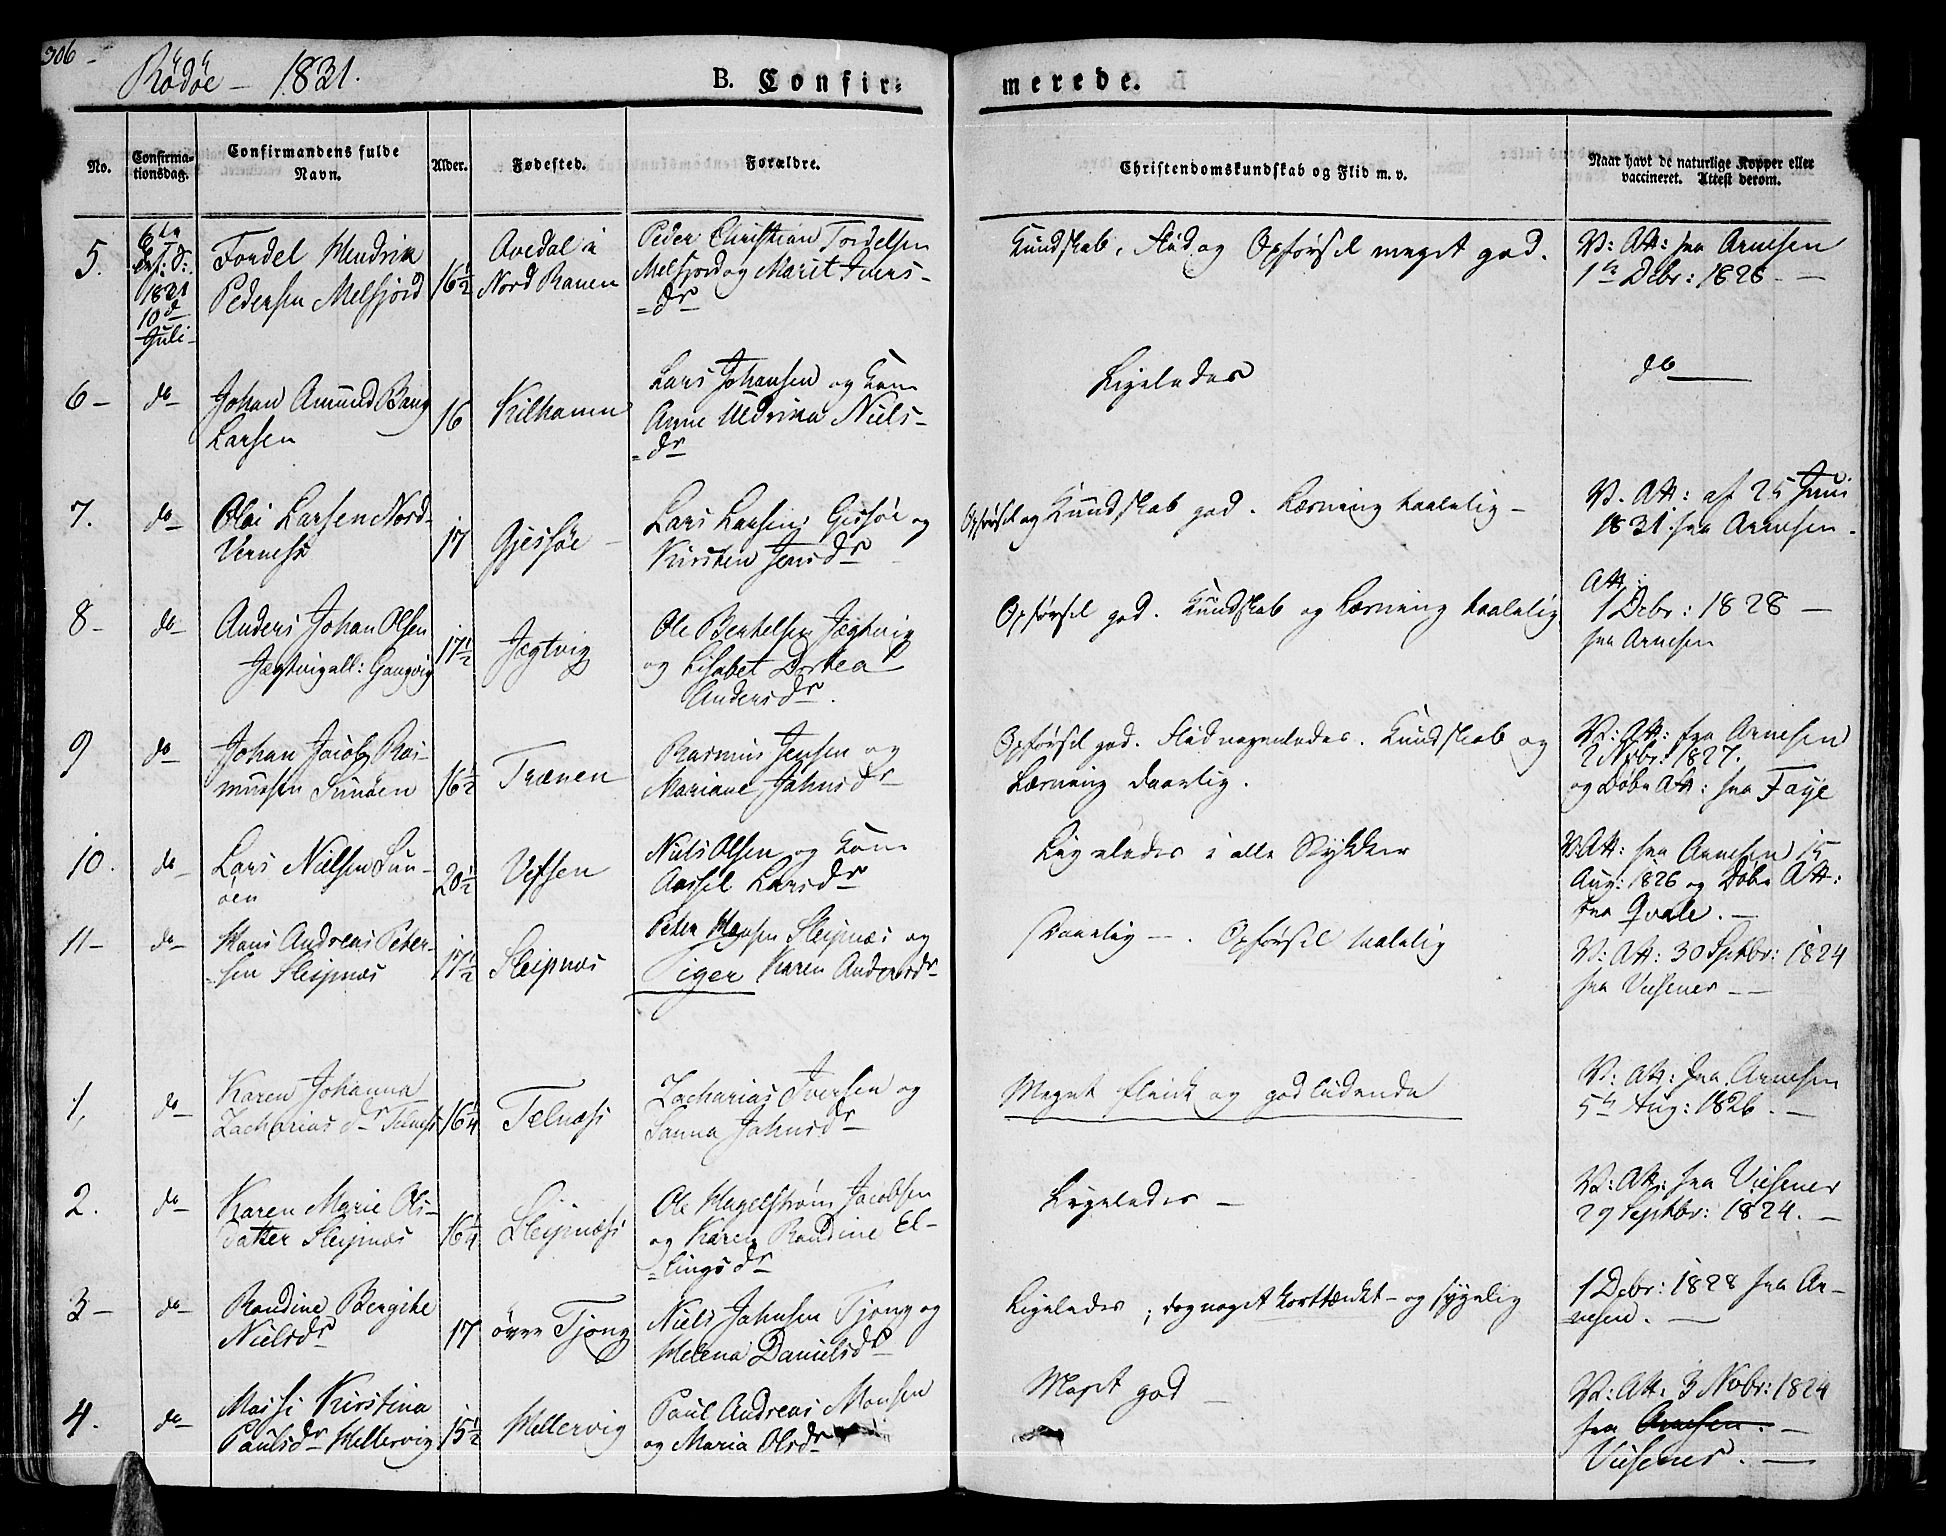 306
Rödöe - 1831.
B. Confir=
merede.
No.
Confirma-
tionsdag.
Confirmandens fulde
Navn.
Alder.
Fødested.
Forældre.
Christendomskundskab og Flid m. v.
Naar havt de naturlige Kopper eller
vaccineret. Attest derom.
5.
1831
10d
Juli
Tordel Hendrik
Pedersen Melfjord
16½
Avedal i
Nord Ranen
Peder Christian Tordelsen
Melfjord og Marit Ivers-
=dr
Kundskab, Flid og Opførsel meget god.
V: Att: fra Arnesen
1ste Debr: 1828 -
6 -
do
Johan Amund Bang
Larsen
16
Kilhavn
Lars Johansen og Kone
Anne Uldrika Niels-
=dr
Ligeledes
do
7.
do
Oloi Larsen Nord-
Verness
17
Gjessøe
Lars Larsen Gissøe og
Kirsten Jensdr
Opførsel og Kundskab god. Læsning taalelig -
V. Att: af 25 Juni
1831. fra Arnesen.
8 -
do
Anders Johan Olsen
Jægtvig all: Gangvig
17½
Jægtvig
Ole Bertelsen Jægtvig
og Lisabet Dortea
Andersdr.
Opførsel god. Kundskab og Læsning taalelig
Att:
1 Debr: 1828 -
fra Arnesen
9
do
Johan Jacob Ras-
mussen Sunøen
16½
Trænen
Rasmus Jensen og
Mariane Johnsdr
Opførsel god. Flid nogenledes. Kundskab og
Læsning daarlig.
V: Att: fra Arnesen
2 Nobr: 1827.
og Døbe Att: fra Faye
10.
do
Lars Nielsen Sun-
øen
20½
Vefsen
Niels Olsen og Kone
Aassel Larsdr
Ligeledes i alle Stykker
V: Att: fra Arnesen 15
Aug: 1826 og Døbe Att:
fra Qvale. -
11 -
do
Hans Andreas Peter-
=sen Sleipnæs
17½
Sleipnæs
Peter Hansen Sleipnæs og
Pigen Karen Andersdr
Daarlig -. Opførsel taalelig
V: Att: 30 Septbr: 1824
fra Viesener -
1,
do
Karen Johanna
Zacharias dr Telness
16¼
Telnæss
Zacharias Iversen og
Sanna Johnsdr
Meget flink og godlydende
V: Att: fra Arnesen
5te Aug: 1826. -
2.
do
Karen Marie Ols-
datter Sleipnæs
16¼
Sleipnæss
Ole Hagelstrøm Jacobsen
og Karen Rondine El-
=lingsdr
Ligeledes -
V: Att: fra Viesener
29 Septbr: 1824. -
3 -
do
Rondine Bergithe
Nielsdr
17
øvre Tjong
Niels Johnsen Tjong og
Helena Danielsdr
Ligeledes; dog noget korttænkt - og sygelig
1 Debr: 1828 fra Ar-
=nesen. -
4.
do
Massi Kirstina
Paulsdr Hellervig
15½
Hellervig
Paul Andreas Monsen
og Maria Olsdr
Meget god -
V: Att: 3 Nobr: 1824
fra Arnesen. -
Viesener. -